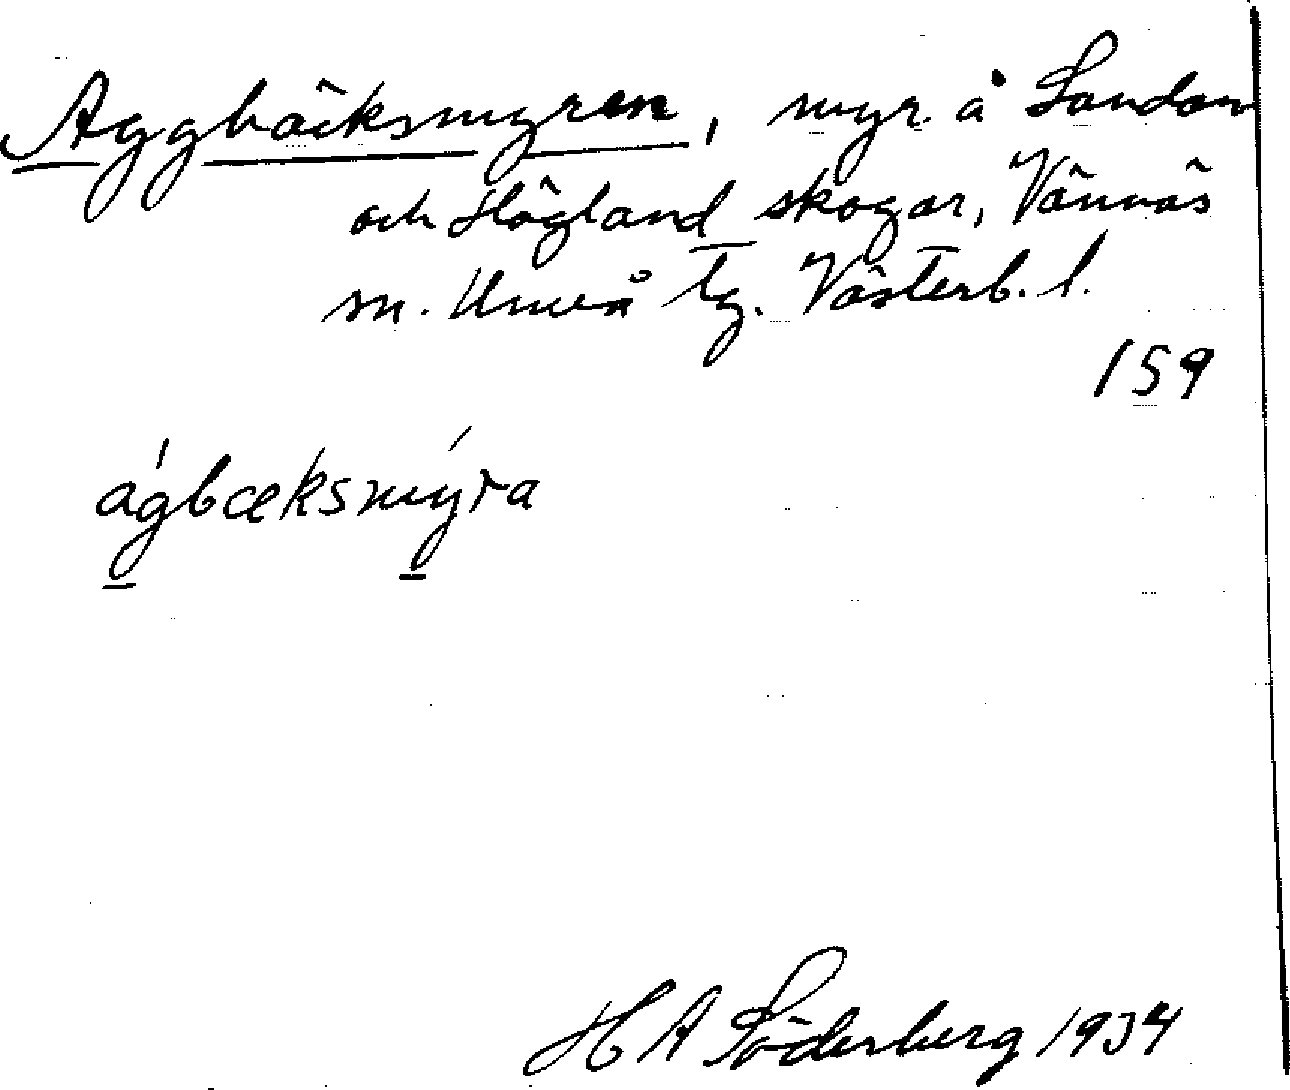 Aggbäcksmyren, myr å Sandan
och Högland skogar, Vännäs
sn. Umeå tg. Västerb. l.
159
agbæksmyra
H A Söderberg 1934